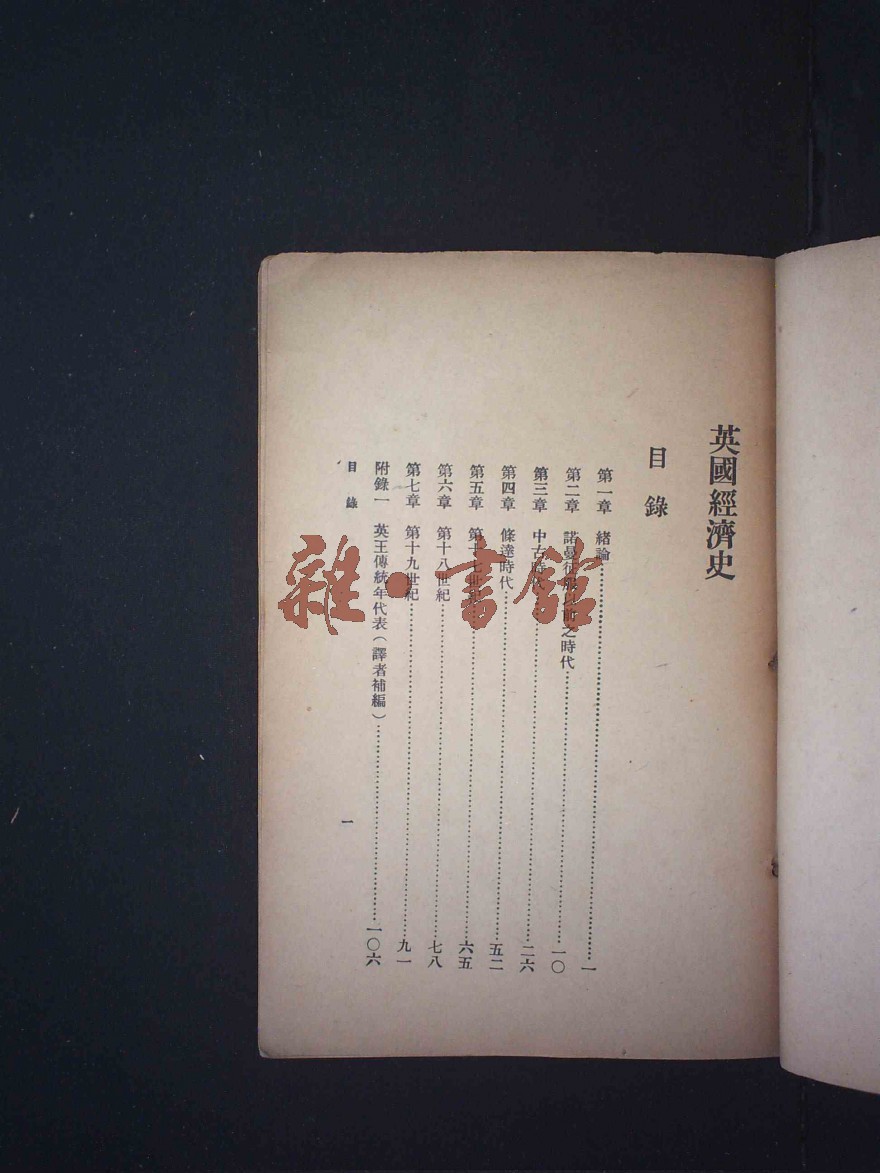 英國經濟史
目錄
第一章 緒論…………一
第二章 諾曼征服以前之時代…………一〇
第三章 中古時代…………二六
第四章 條達時代…………五二
第五章 第十七世紀…………六五
第六章 第十八世紀…………七八
第七章 第十九世紀…………九一
附錄一 英王傳統年代表(譯者補編)…………一〇六
目錄
一
雜·書館